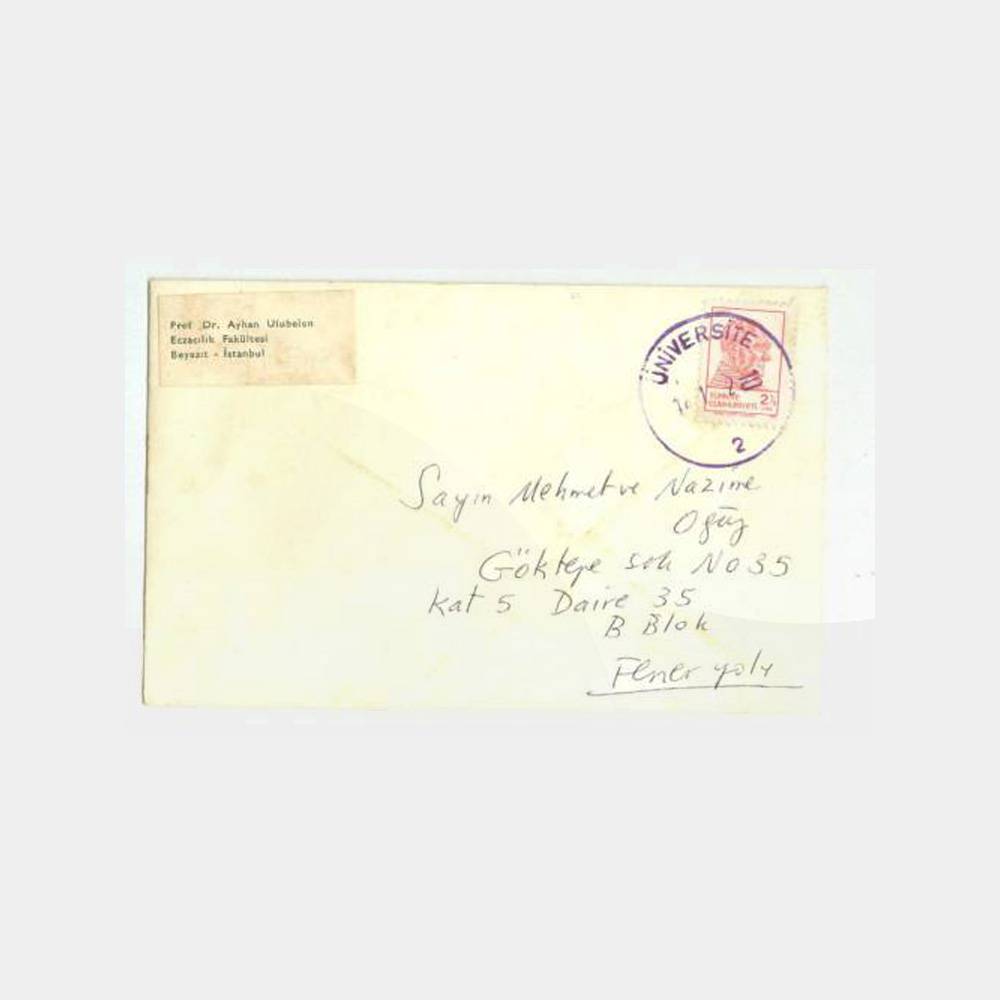 Prof. Dr. Ayhan Ulubelen
Eczacılık Fakültesi
Beyazıt - İstanbul
ÜNİVERSİTE
10
2
TÜRKİYE
CUMHURİYETİ
2½
Sayın Mehmet ve Nazime
Oğuz
Göktepe sok No 35
Kat 5 Daire 35
B Blok
Feneryolu